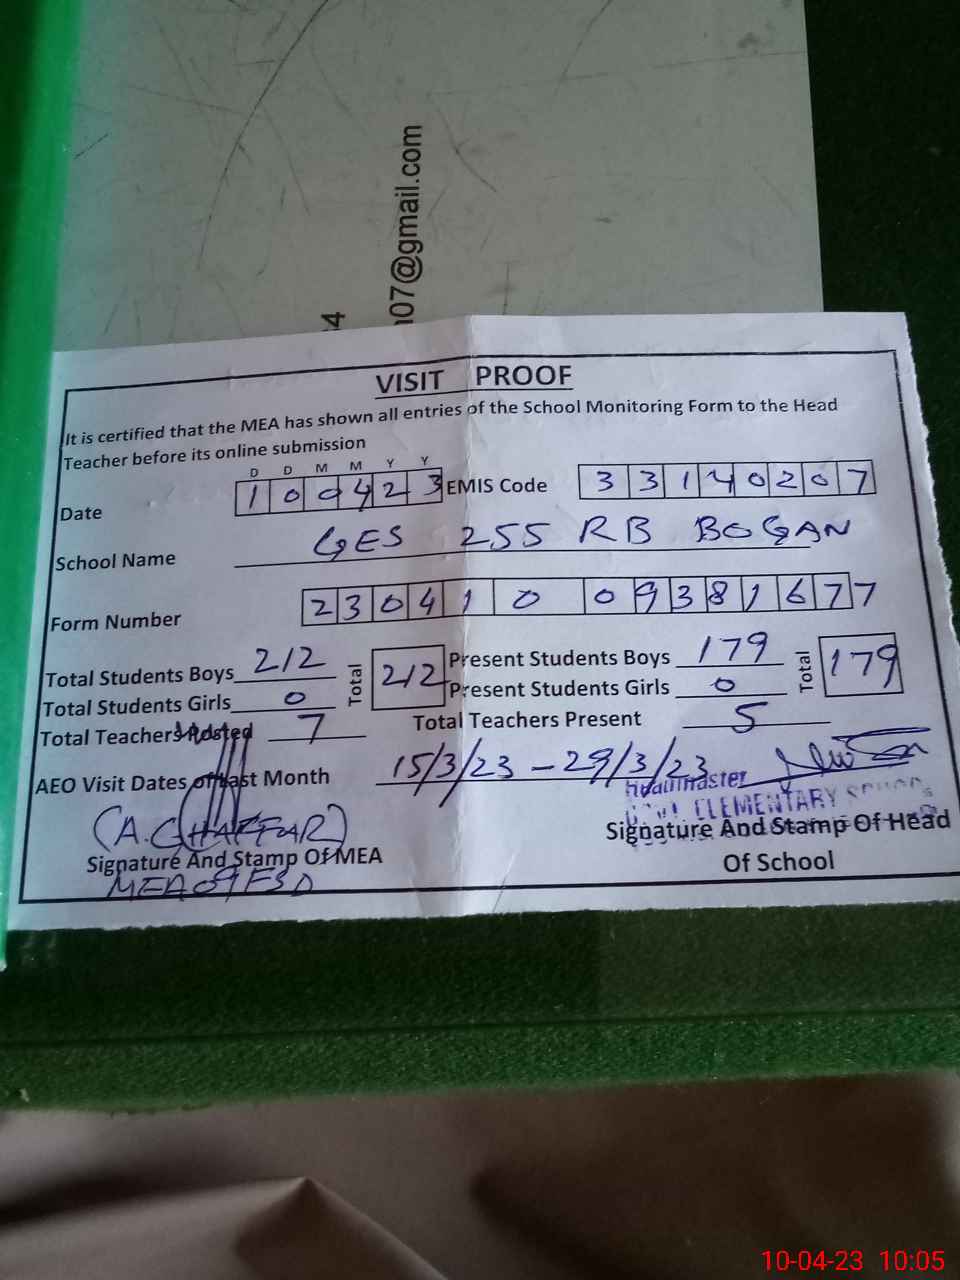 n07@gmail.com
4
VISIT PROOF
It is certified that the MEA has shown all entries of the School Monitoring Form to the Head
Teacher before its online submission
D D M M Y Y
Date 1 0 0 4 2 3 EMIS Code 3 3 1 4 0 2 0 7
School Name GES 255 RB BOGAN
Form Number 2 3 0 4 1 0 0 9 3 8 1 6 7 7
Total Students Boys 212 Total 212 Present Students Boys 179 Total 179
Total Students Girls 0 Present Students Girls 0
Total Teachers Posted 7 Total Teachers Present 5
AEO Visit Dates of Last Month 15/3/23 - 29/3/23
Headmaster
ELEMENTARY
(A. GHAFFAR)
Signature And Stamp Of MEA
MEA
Signature And Stamp Of Head
Of School
10-04-23 10:05